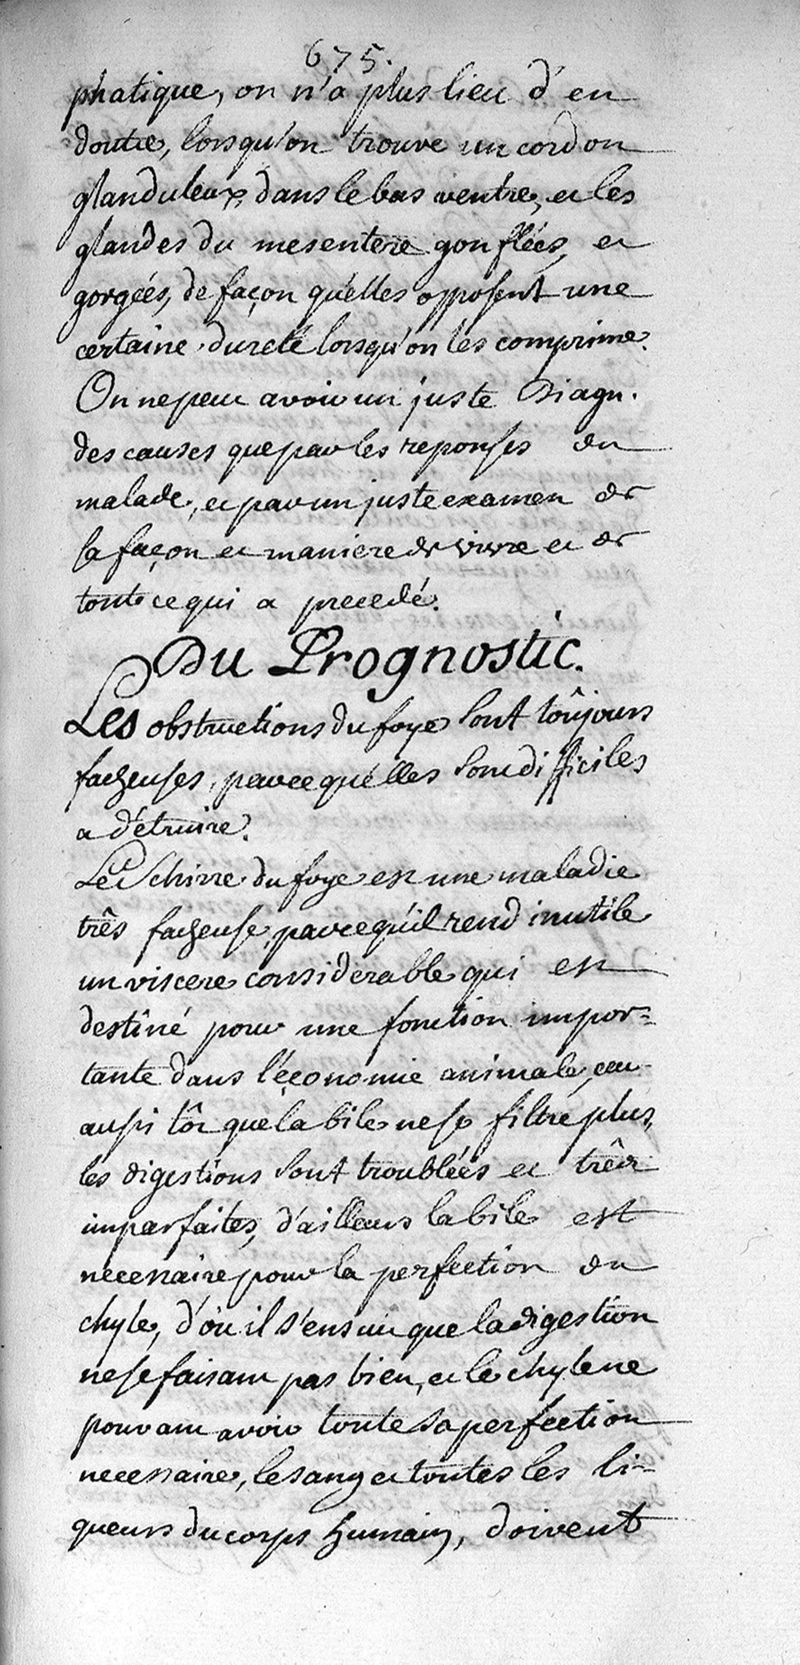 675.
phatique, on n'a plus lieu d'en
doute, lorsqu'on trouve un cordon
glanduleux, dans le bas ventre, et les
glandes du mesentere gonflées, et
gorgées, de façon qu'elles opposent une
certaine dureté lorsqu'on les comprime.
On ne peut avoir un juste Diagn.
des causes que par les reponses du
malade, et par un juste examen de
la façon et maniere de vivre et de
tout ce qui a precedé.
Du Prognostic.
Les obstructions du foye sont toûjours
facheuses, parce qu'elles sont difficiles
a détruire.
Le Schirre du foye est une maladie
três facheuse, parce qu'il rend inutile
un viscere considerable qui est
destiné pour une fonction impor=
tante dans l'économie animale, car
aussi tôt que la bile ne se filtre plus,
les digestions sont troublées et três
imparfaites, d'ailleurs la bile est
necessaire pour la perfection du
chyle, d'où il s'ensuit que la digestion
ne se faisant pas bien, et le chyle ne
pouvant avoir toute sa perfection
necessaire, le sang et toutes les li=
queurs du corps humain, doivent